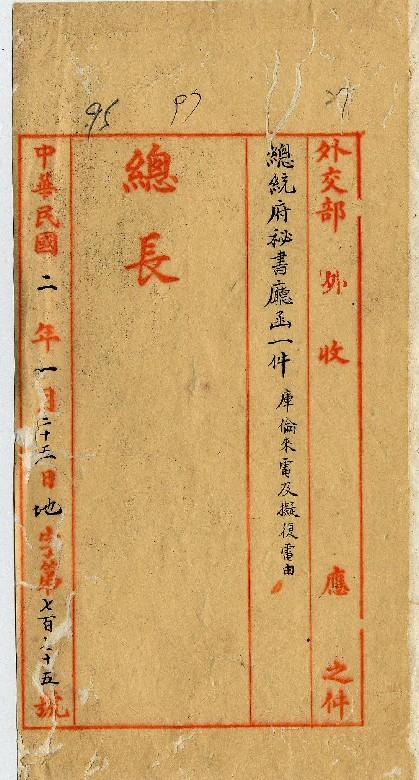 95 97 27
外交部 外 收 應 之件
總統府秘書廳函一件 庫倫來電及擬復電由
總長
中華民國二年一月二十三日地字第七百 十五號